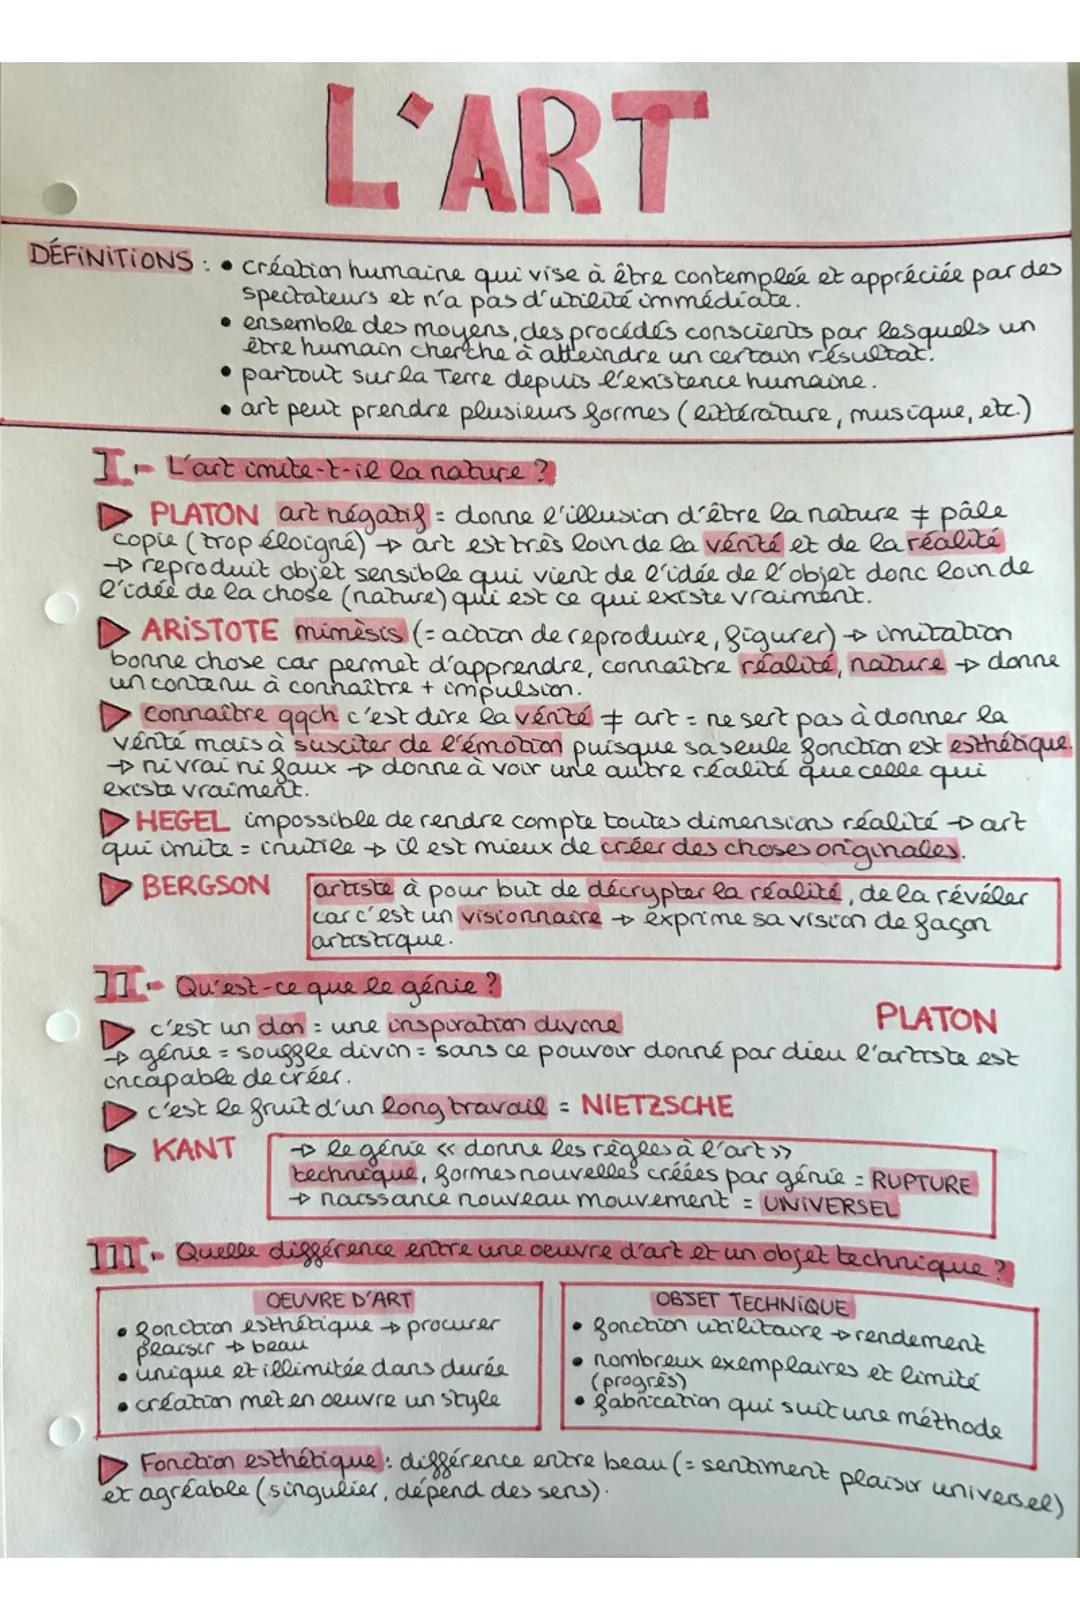 L'ART
DÉFINITIONS : • création humaine qui vise à être contemplée et appréciée par des
spectateurs et n'a pas d'utilité immédiate.
• ensemble des moyens, des procédés conscients par lesquels un
être humain cherche à atteindre un certain résultat.
• partout sur la Terre depuis l'existence humaine.
• art peut prendre plusieurs formes (littérature, musique, etc.)
I - L'art imite-t-il la nature ?
▷ PLATON art négatif = donne l'illusion d'être la nature ≠ pâle
copie (trop éloigné) → art est très loin de la vérité et de la réalité
→ reproduit objet sensible qui vient de l'idée de l'objet donc loin de
l'idée de la chose (nature) qui est ce qui existe vraiment.
▷ ARISTOTE mimèsis (= action de reproduire, figurer) → imitation
bonne chose car permet d'apprendre, connaître réalité, nature → donne
un contenu à connaître + impulsion.
▷ connaître qqch c'est dire la vérité ≠ art = ne sert pas à donner la
vérité mais à susciter de l'émotion puisque sa seule fonction est esthétique.
→ ni vrai ni faux → donne à voir une autre réalité que celle qui
existe vraiment.
▷ HEGEL impossible de rendre compte toutes dimensions réalité → art
qui imite = inutile → il est mieux de créer des choses originales.
▷ BERGSON artiste à pour but de décrypter la réalité, de la révéler
car c'est un visionnaire → exprime sa vision de façon
artistique.
II - Qu'est-ce que le génie ?
▷ c'est un don = une inspiration divine PLATON
→ génie = souffle divin = sans ce pouvoir donné par dieu l'artiste est
incapable de créer.
▷ c'est le fruit d'un long travail = NIETZSCHE
▷ KANT → le génie « donne les règles à l'art »
technique, formes nouvelles créées par génie = RUPTURE
→ naissance nouveau mouvement = UNIVERSEL
III - Quelle différence entre une oeuvre d'art et un objet technique ?
OEUVRE D'ART
• fonction esthétique → procurer
plaisir → beau
• unique et illimitée dans durée
• création met en oeuvre un style
OBJET TECHNIQUE
• fonction utilitaire → rendement
• nombreux exemplaires et limité
(progrès)
• fabrication qui suit une méthode
▷ Fonction esthétique : différence entre beau (= sentiment plaisir universel)
et agréable (singulier, dépend des sens).